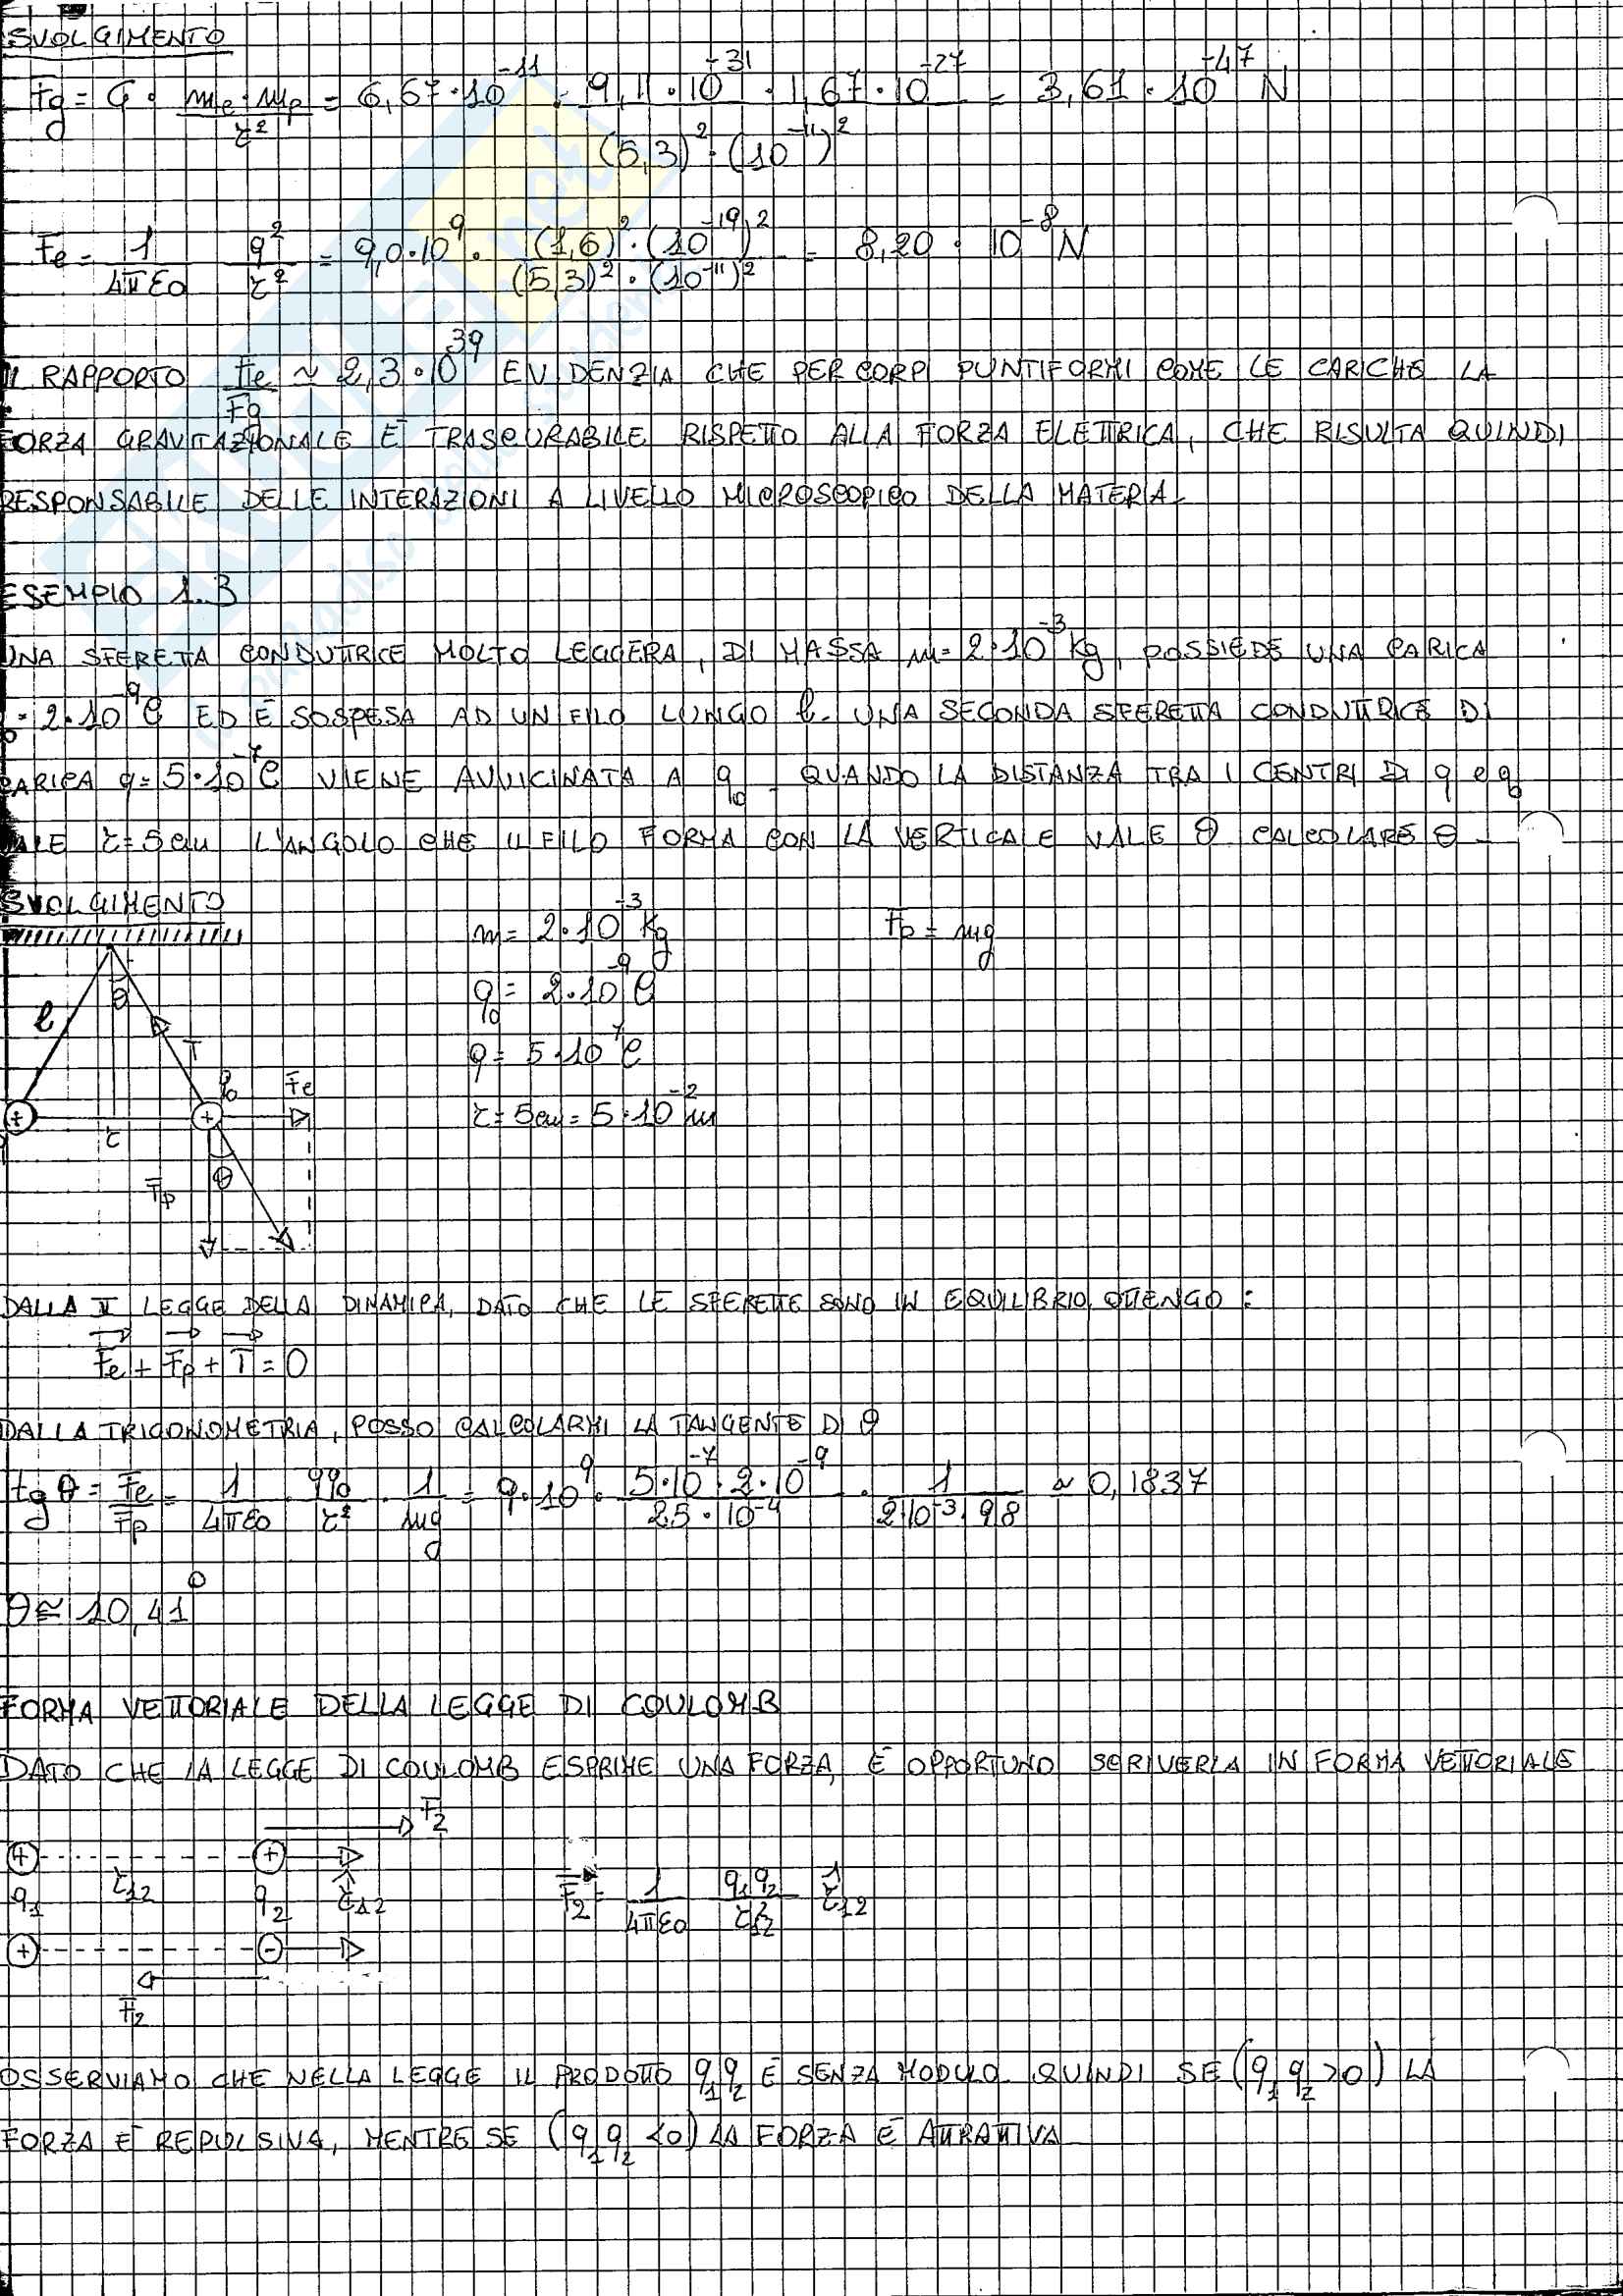 SVOLGIMENTO
Fg = G · me·mp / r² = 6,67·10⁻¹¹ · 9,11·10⁻³¹ · 1,67·10⁻²⁷ / (5,3)²·(10⁻¹¹)² = 3,61·10⁻⁴⁷ N
Fe = 1/4πε0 q²/r² = 9,0·10⁹ · (1,6)²·(10⁻¹⁹)² / (5,3)²·(10⁻¹¹)² = 8,20·10⁻⁸ N
IL RAPPORTO Fe/Fg ~ 2,3·10³⁹ EVIDENZIA CHE PER CORPI PUNTIFORMI COME LE CARICHE LA
FORZA GRAVITAZIONALE È TRASCURABILE RISPETTO ALLA FORZA ELETTRICA, CHE RISULTA QUINDI
RESPONSABILE DELLE INTERAZIONI A LIVELLO MICROSCOPICO DELLA MATERIA
ESEMPIO 1.3
UNA SFERETTA CONDUTTRICE MOLTO LEGGERA, DI MASSA m=2·10⁻³Kg, POSSIEDE UNA CARICA
= 2·10⁻⁹C ED È SOSPESA AD UN FILO LUNGO l. UNA SECONDA SFERETTA CONDUTTRICE DI
CARICA q=5·10⁻⁷C VIENE AVVICINATA A q0. QUANDO LA DISTANZA TRA I CENTRI DI q e q0
VALE r=5cm L'ANGOLO CHE IL FILO FORMA CON LA VERTICALE VALE θ CALCOLARE θ
SVOLGIMENTO
m = 2·10⁻³ Kg
Fp = mg
q0 = 2·10⁻⁹ C
q = 5·10⁻⁷ C
r = 5cm = 5·10⁻² m
θ
l
T
q0
Fe
r
θ
Fp
DALLA II LEGGE DELLA DINAMICA, DATO CHE LE SFERETTE SONO IN EQUILIBRIO OTTENGO:
Fe + Fp + T = 0
DALLA TRIGONOMETRIA, POSSO CALCOLARMI LA TANGENTE DI θ
tg θ = Fe/Fp = 1/4πε0 · qq0/r² · 1/mg = 9·10⁹ · 5·10⁻⁷·2·10⁻⁹ / 25·10⁻⁴ · 1 / 2·10⁻³·9,8 ≃ 0,1837
θ ≅ 10,41°
FORMA VETTORIALE DELLA LEGGE DI COULOMB
DATO CHE LA LEGGE DI COULOMB ESPRIME UNA FORZA, È OPPORTUNO SCRIVERLA IN FORMA VETTORIALE
F2
q1 r12 q2 r̂12
F2 = 1/4πε0 q1q2/r²12 r̂12
F2
OSSERVIAMO CHE NELLA LEGGE IL PRODOTTO q1q2 È SENZA MODULO. QUINDI SE (q1q2>0) LA
FORZA È REPULSIVA, MENTRE SE (q1q2<0) LA FORZA È ATTRATTIVA